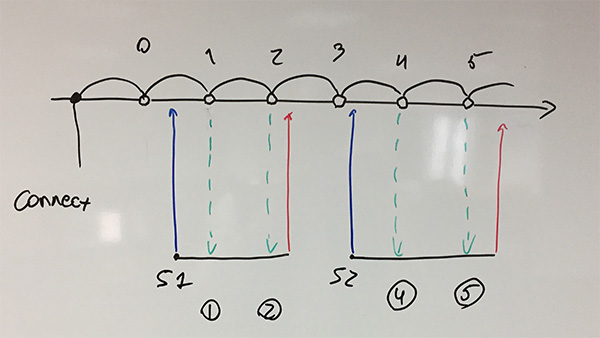 0 1 2 3 4 5
Connect
S1 S2
1 2 4 5